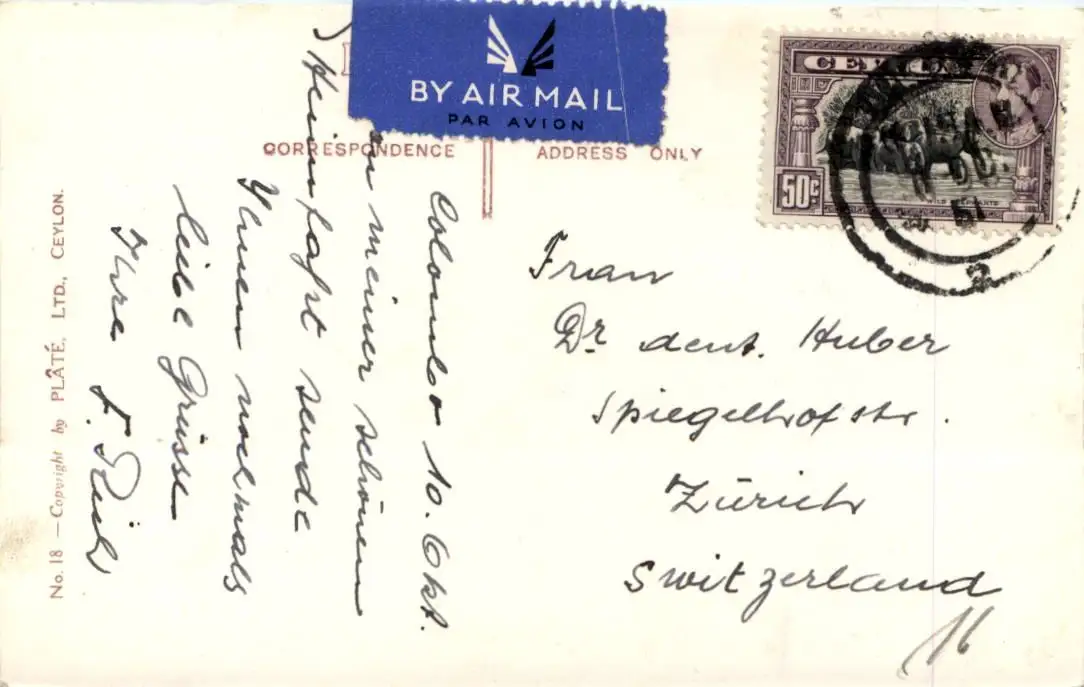 BY AIR MAIL
PAR AVION
CEYLON
50c
WILD ELEPHANTS
51
2
CORRESPONDENCE
ADDRESS ONLY
Colombo 10. Okt.
meiner schönen
Heimfahrt sende
Ihnen nochmals
liebe Grüsse
Ihre
Frau
Dr dent. Huber
Spiegelhofstr.
Zürich
Switzerland
No. 18 — Copyright by PLÂTÉ, LTD., CEYLON.